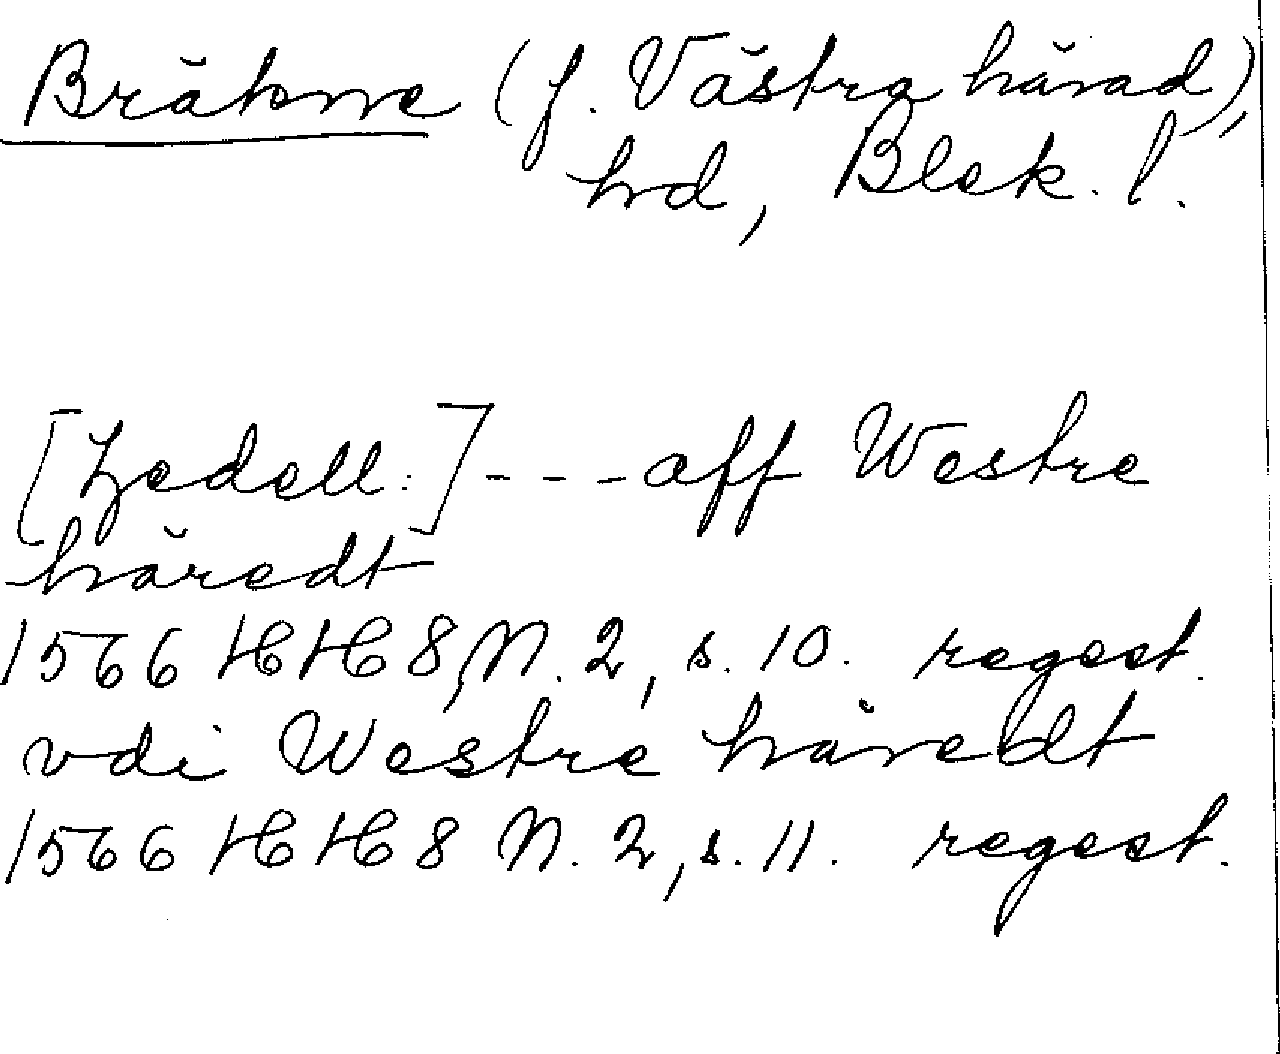 Bräkne (f. Västra härad),
hrd, Blek. l.
[Zedell:] - - - aff Westre
häredt
1566 HH 8, N. 2, s. 10. regest.
vdi Westre häredt
1566 HH 8 N. 2, s. 11. regest.